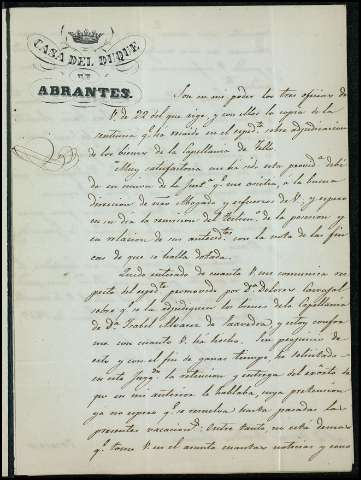 CASA DEL DUQUE
DE
ABRANTES.
Son en mi poder los tres oficios de
V. de 22 del que rige, y con ellos la copia de la
sentencia q.e ha recaido en el exped.te sobre adjudicacion
de los bienes de la Capellania de Tello.
Muy satisfactoria me ha sido esta provid.a debi-
da en fuerza de la just.a q.e me asistia, á la buena
direccion de ese Abogado y esfuerzos de V. y espero
en su dia la remision del testim.o de la posesion y
en relacion de sus anteced.tes con la nota de las fin-
cas de que se halla dotada.
Quedo enterado de cuanto V. me comunica res-
pecto del exped.te promovido por D.a Dolores Carvajal
sobre q.e se la adjudiquen los bienes de la Capellania
de D.a Isabel Alvarez de Saavedra y estoy confor-
me con cuanto V. ha hecho. Sin perjuicio de
esto y con el fin de ganar tiempo, ha solicitado
en este Juzg.do la retencion y entrega del exorto de
que en mi anterior le hablaba, cuya pretension
ya no espero q.e se resuelva hasta pasadas las
presentes vacacion.s Entre tanto no está demas
q.e tome V. en el asunto cuantas noticias y cono